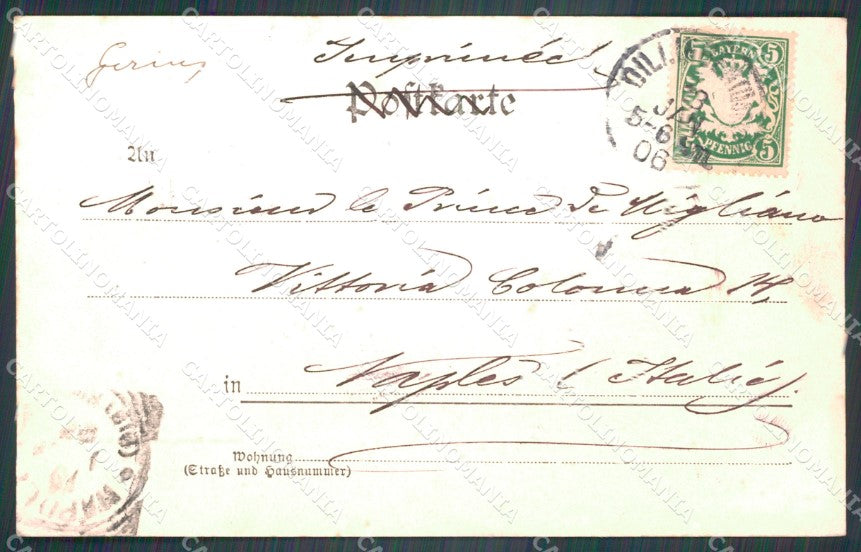 Imprimée
Postkarte
BAYERN
5 5
PFENNIG
5 5
3
JAN
5-6
06
An
Monsieur le Prince de Migliano
Vittoria Colonna 14
in Naples (Italie)
Wohnung
(Straße und Hausnummer)
CARTOLINOMANIA